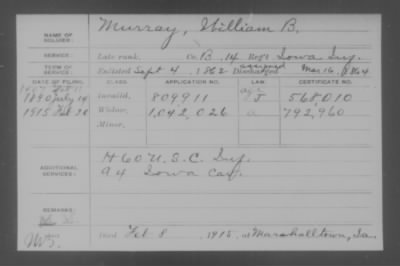 NAME OF SOLDIER: Murray, William B.
SERVICE: Late rank, Co. B, 14 Reg't Iowa Inf.
TERM OF SERVICE: Enlisted Sept 4, 1862 Discharged Mar 16, 1864
DATE OF FILING. CLASS. APPLICATION NO. LAW. CERTIFICATE NO.
1890 July 14 Invalid, 809911 J 568,010
1915 Feb 20 Widow, 1,042,026 a 792,960
Minor,
ADDITIONAL SERVICES: H 60 U.S.C. Inf.
94 Iowa Cav.
REMARKS:
Died Feb 8, 1915, at Marshalltown, Ia.